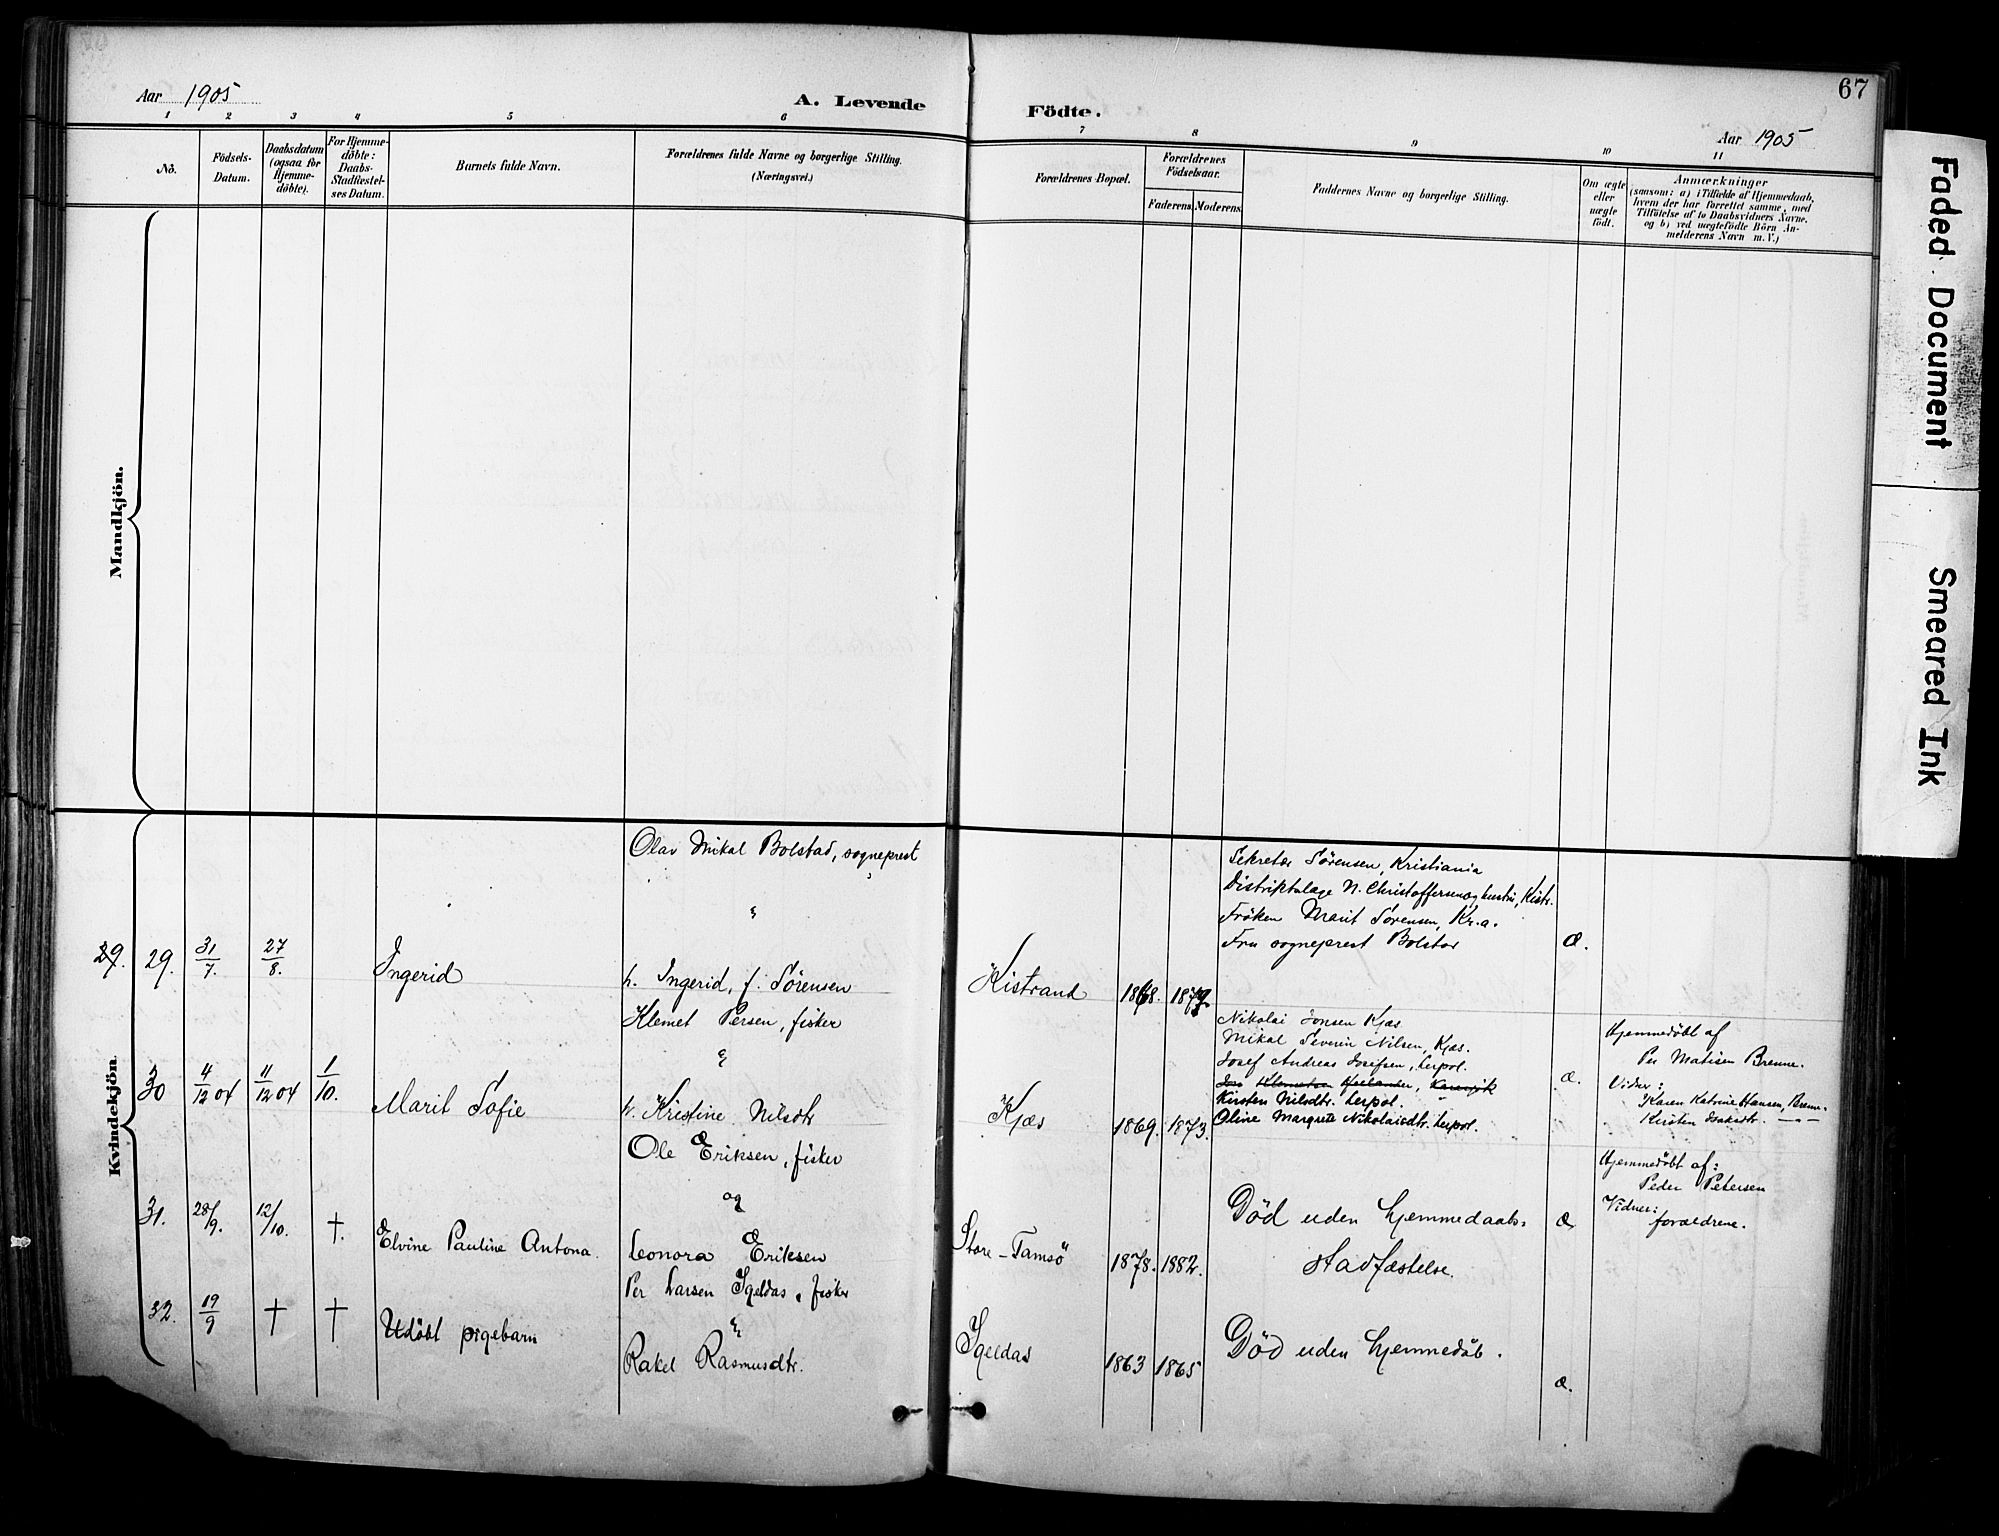 67
Aar 1905
A. Levende
Födte.
Aar 1905
1 2 3 4 5 6 7 8 9 10 11
No.
Födsels-
Datum.
Daabsdatum
(ogsaa for
Hjemme-
döbte).
For Hjemme-
döbte:
Daabs-
Stadfæstel-
ses Datum.
Barnets fulde Navn.
Forældrenes fulde Navne og borgerlige Stilling.
(Næringsvei.)
Forældrenes Bopæl.
Forældrenes
Födselsaar.
Faderens.
Moderens.
Faddernes Navne og borgerlige Stilling.
Om ægte
eller
uægte
födt.
Anmærkninger
(saasom: a) i Tilfælde af Hjemmedaab,
hvem der har forrettet samme, med
Tilföielse af to Daabsvidners Navne,
og b) ved uægtefödte Börn An-
melderens Navn m. V.)
Mandkjön.
Kvindekjön
29. 29. 31/7. 27/8. Ingerid
Olav Mikal Bolstad, sogneprest
&
h. Ingerid, f. Sørensen
Kistrand 1868. 1879.
Sekretær Sørensen, Kristiania
Distriktslæge N. Christoffersen og hustru, Kistr.
Frøken Marit Sørensen, Kr.a.
Fru sogneprest Bolstad
æ.
30 4/12 04 11/12 04 1/10. Marit Sofie
Klemet Persen, fisker
&
h. Kristine Nilsdtr
Kjæs 1869. 1873.
Nikolai Jonsen Kjæs
Mikal Severin Nilsen, Kjæs.
Josef Andreas Josefsen, Lerpol.
Kirsten Nilsdtr. Lerpol.
Oline Margrete Nikolaisdtr. Lerpol.
æ.
Hjemmedøbt af
Per Matisen Brenne.
Vidner:
Karen Katrine Hansen, Brenn.
Kirsten Isaksdtr. —"—
31. 28/9. 12/10. †. Elvine Pauline Antona.
Ole Eriksen, fisker
og
Leonora Eriksen
Store-Tamsö 1878. 1882.
Död uden hjemmedaabs=
stadfæstelse.
æ
Hjemmedöbt af:
Peder Petersen
Vidner:
forældrene.
32. 19/9 † † Udöbt pigebarn
Per Larsen Igeldas, fisker
&
Rakel Rasmusdtr.
Igeldas 1863 1865
Död uden hjemmedöb.
æ.
Faded Document
Smeared Ink